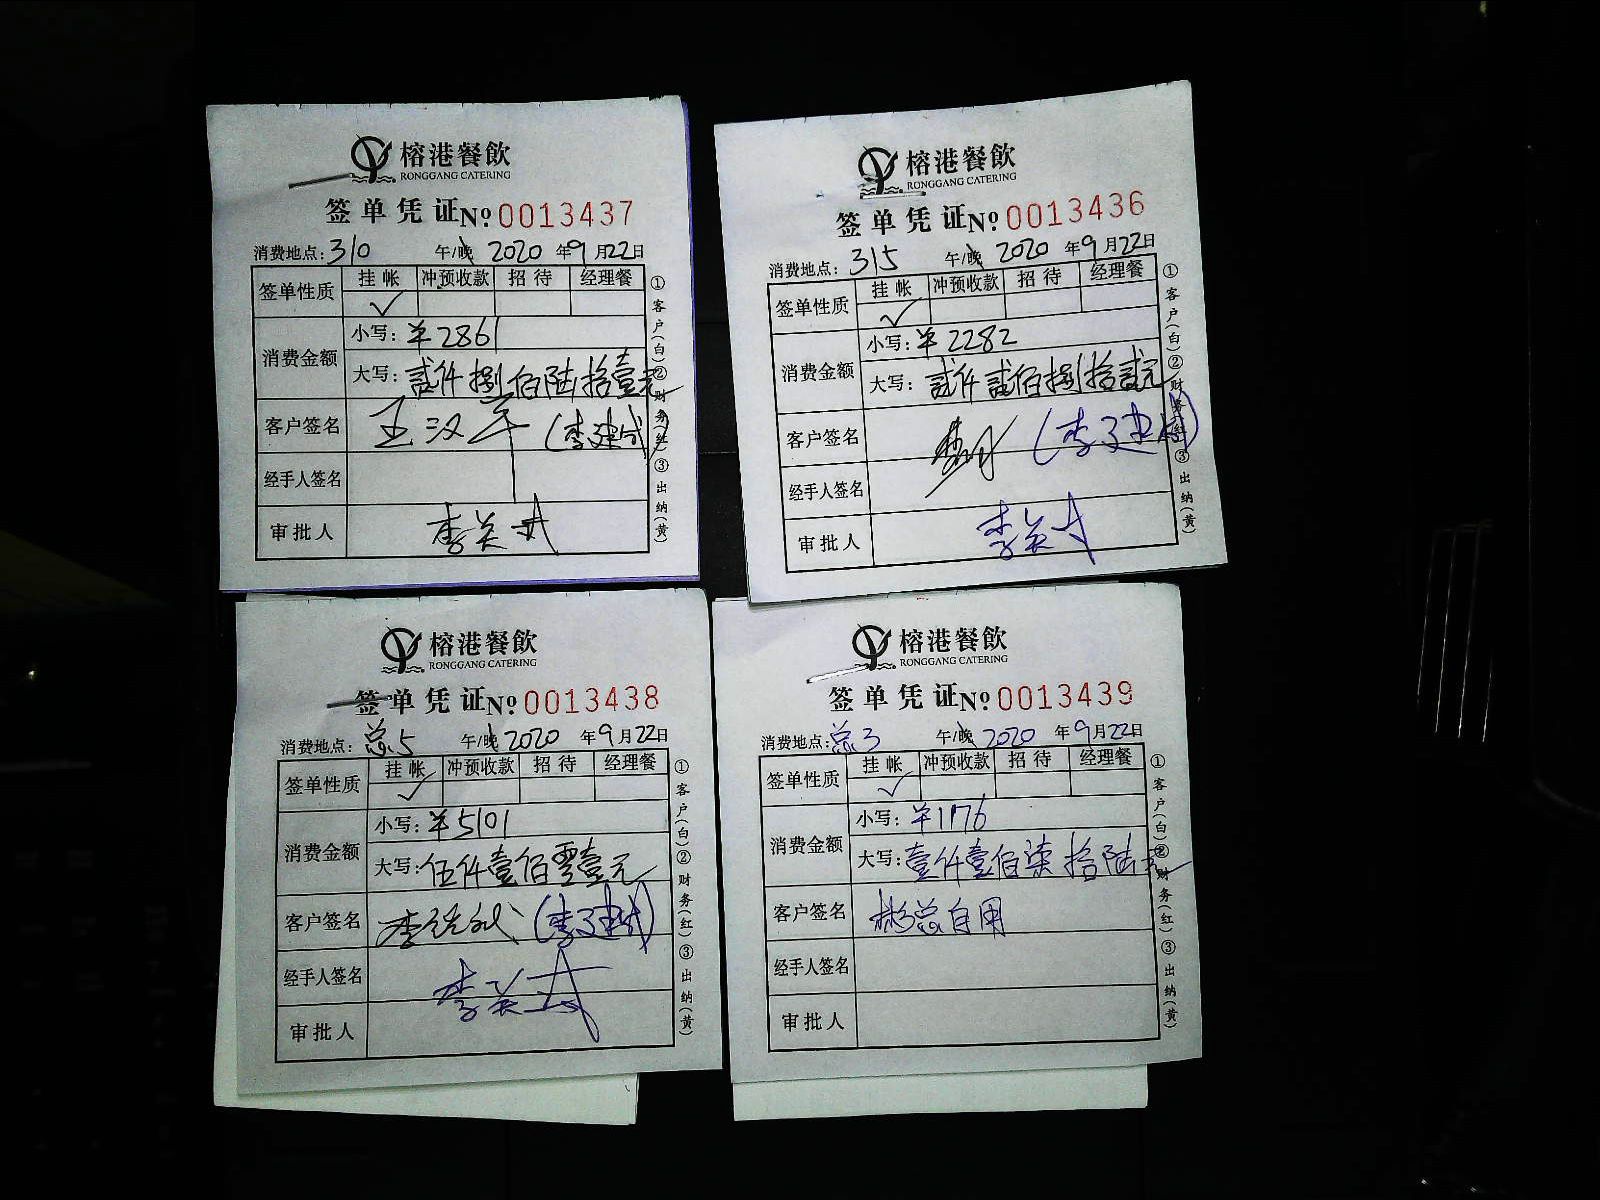 榕港餐飲
RONGGANG CATERING
签单凭证№0013437
消费地点：310 午/晚 2020年9月22日
签单性质 挂帐 冲预收款 招待 经理餐
✓
消费金额 小写：¥2861
大写：贰仟捌佰陆拾壹元
客户签名 王汉平（李建成）
经手人签名
审批人 李关
①客户（白）②财务（红）③出纳（黄）
榕港餐飲
RONGGANG CATERING
签单凭证№0013436
消费地点：315 午/晚 2020年9月22日
签单性质 挂帐 冲预收款 招待 经理餐
✓
消费金额 小写：¥2282
大写：贰仟贰佰捌拾贰元
客户签名 （李建成）
经手人签名
审批人 李关
①客户（白）②财务（红）③出纳（黄）
榕港餐飲
RONGGANG CATERING
签单凭证№0013438
消费地点：总5 午/晚 2020年9月22日
签单性质 挂帐 冲预收款 招待 经理餐
✓
消费金额 小写：¥5101
大写：伍仟壹佰零壹元
客户签名 李（李建成）
经手人签名 李关
审批人
①客户（白）②财务（红）③出纳（黄）
榕港餐飲
RONGGANG CATERING
签单凭证№0013439
消费地点：总3 午/晚 2020年9月22日
签单性质 挂帐 冲预收款 招待 经理餐
✓
消费金额 小写：¥1176
大写：壹仟壹佰柒拾陆元
客户签名 彬总自用
经手人签名
审批人
①客户（白）②财务（红）③出纳（黄）